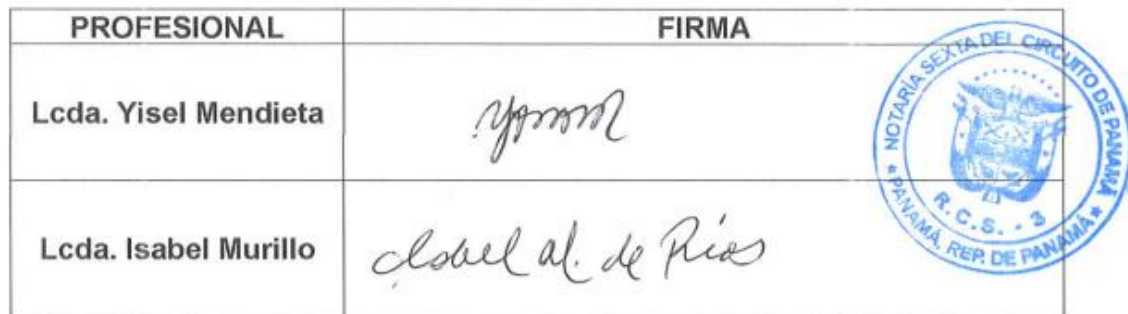 PROFESIONAL FIRMA
Lcda. Yisel Mendieta
Lcda. Isabel Murillo Isabel M. de Ríos
NOTARÍA SEXTA DEL CIRCUITO DE PANAMÁ
R.C.S. - 3
* PANAMÁ, REP. DE PANAMÁ *